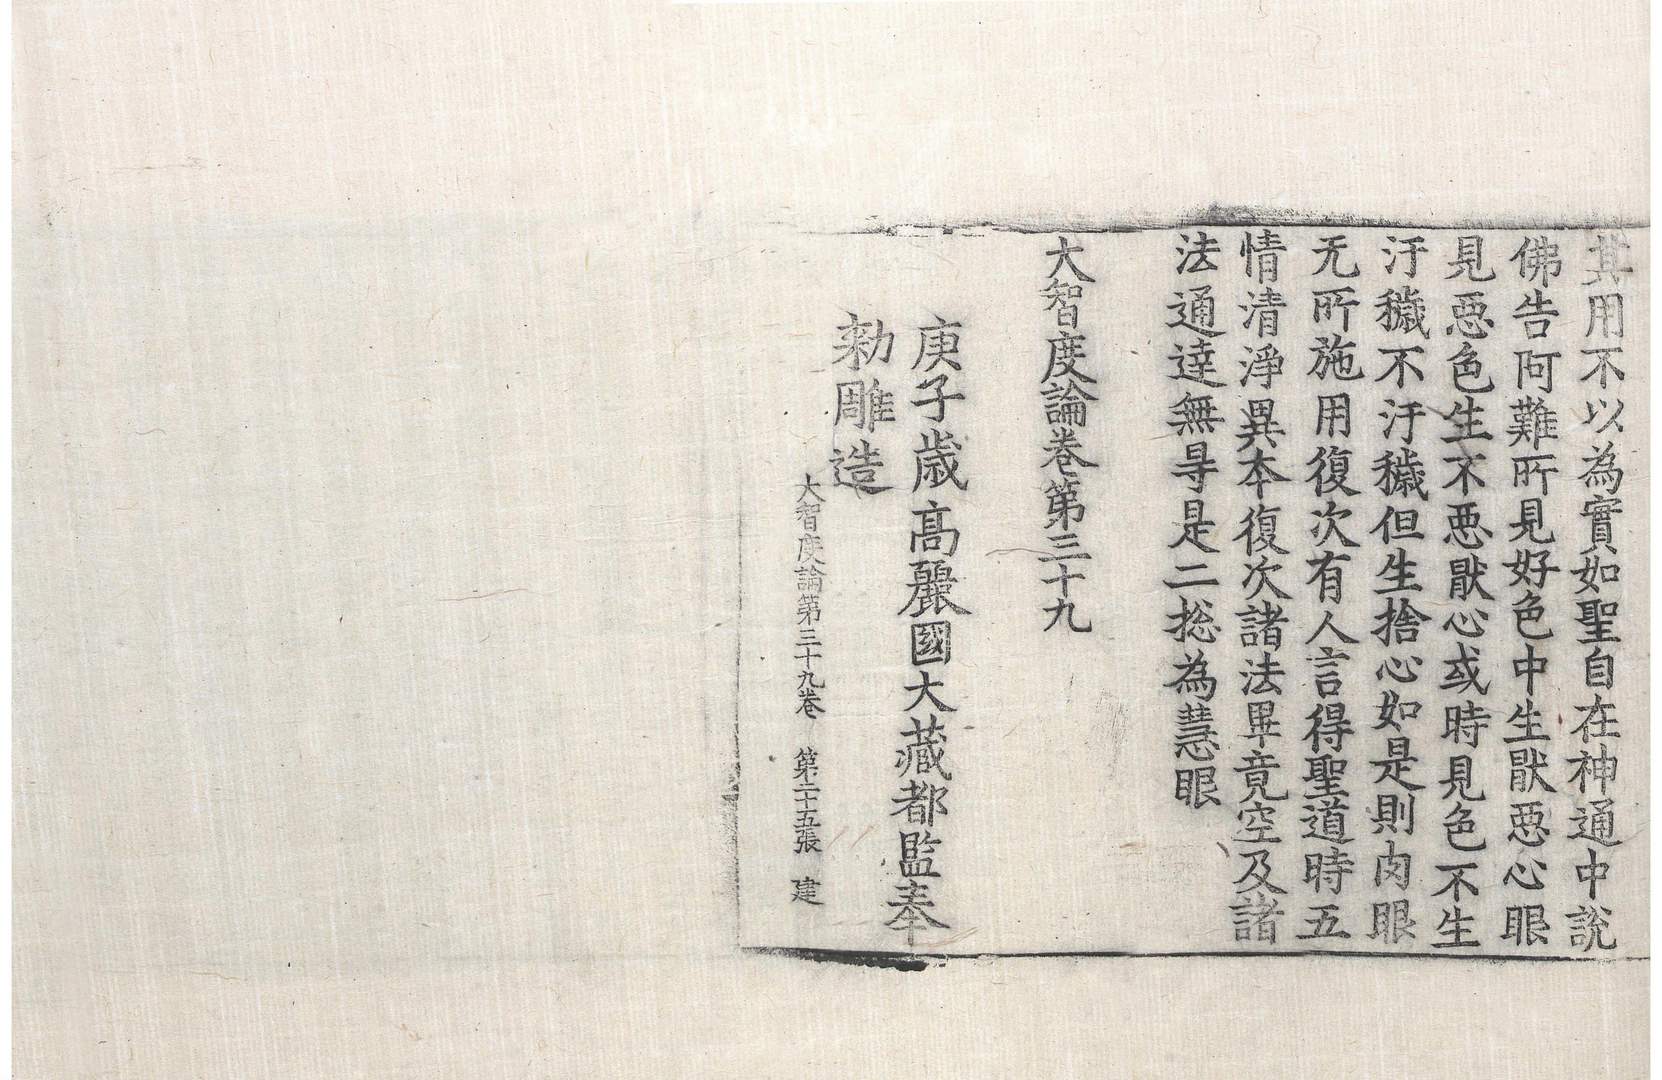 其用不以為實如聖自在神通中說
佛告阿難所見好色中生猒惡心眼
見惡色生不惡猒心或時見色不生
汙穢不汙穢但生捨心如是則肉眼
无所施用復次有人言得聖道時五
情清淨異本復次諸法畢竟空及諸
法通達無㝵是二捴為慧眼
大智度論卷第三十九
庚子歲高麗國大藏都監奉
勑雕造
大智度論第三十九卷　第二十五張　建